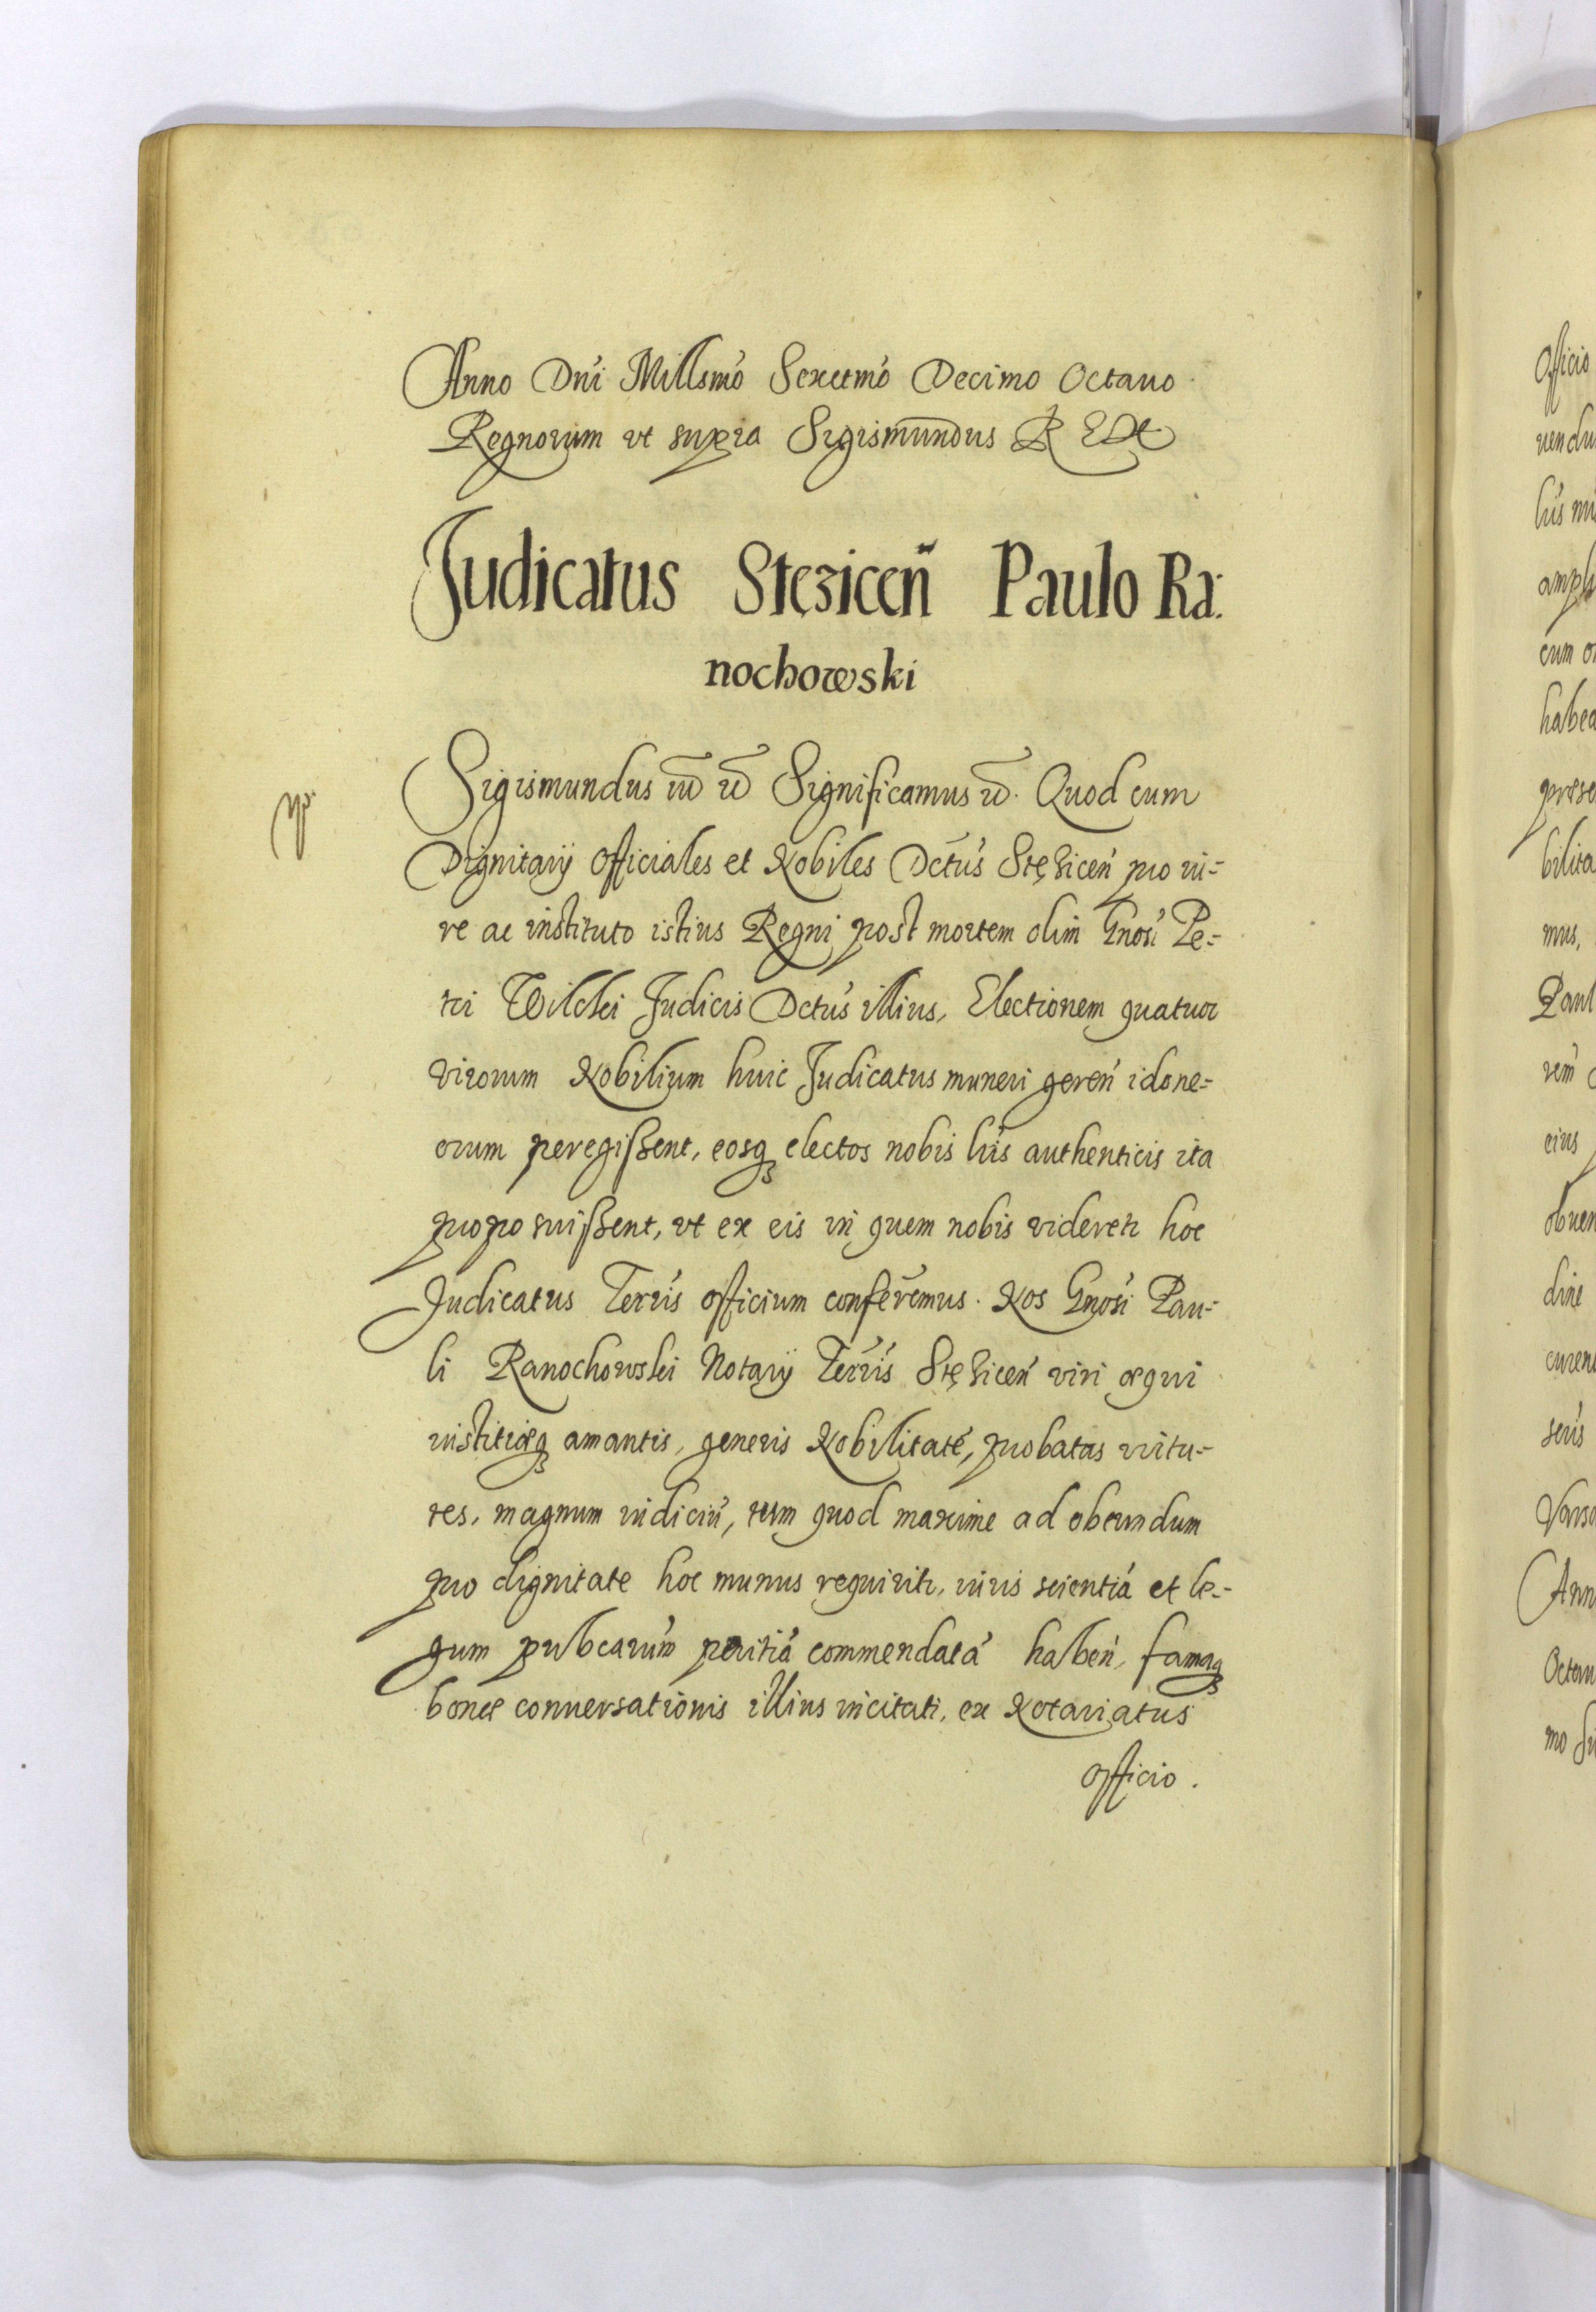 Anno Dni Millsmo Sexctmo Decimo Octauo
Regnorum vt supra Sigismundus R
Judicatus Stęzicen Paulo Ra:
nochowski
Sigismundus Significamus Quod cum
Dignitarij officiales et Nobiles Dctus Stęzicen pro iu-
re ac instituto istius Regni post mortem olim Gnosi Pe-
tri Wilcki Judicis Dctus illius, Electionem quatuor
virorum Nobilium huic Judicatus muneri geren idone-
orum peregissent, eosq electos nobis lris authenticis ita
proposuissent, vt ex eis in quem nobis videretr hoc
Judicatus Terris officium conferremus. Nos Gnosi Pau-
li Ranochowski Notarij Terris Stęzicen viri æqui
iustitiæq amantis, generis Nobilitate, probatas virtu-
tes, magnum iudiciu, tum quod maxime ad obeundum
pro dignitate hoc munus requiritr, iuris scientiá et le-
gum pubcarum peritiá commendatá haben, famaq
bonæ conuersationis illius incitati, ex Notariatus
officio.
Officio
habea
mus,
eius
dine
Ann